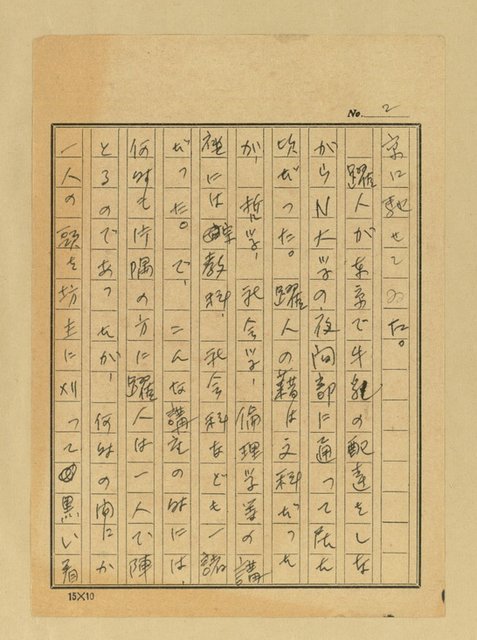 No. 2
京に馳せてゐた。
躍人が東京で牛乳の配達をしな
がらN大学の夜間部に通って居た
頃だった。躍人の籍は文科だった
が、哲学、社会学、倫理学等の講
座には宗教科、社会科なども一諸
だった。で、こんな講座の時には、
何時も片隅の方に躍人は一人で陣
とるのであったが、何時の間にか
一人の頭を坊主に刈って黒い着
15×10